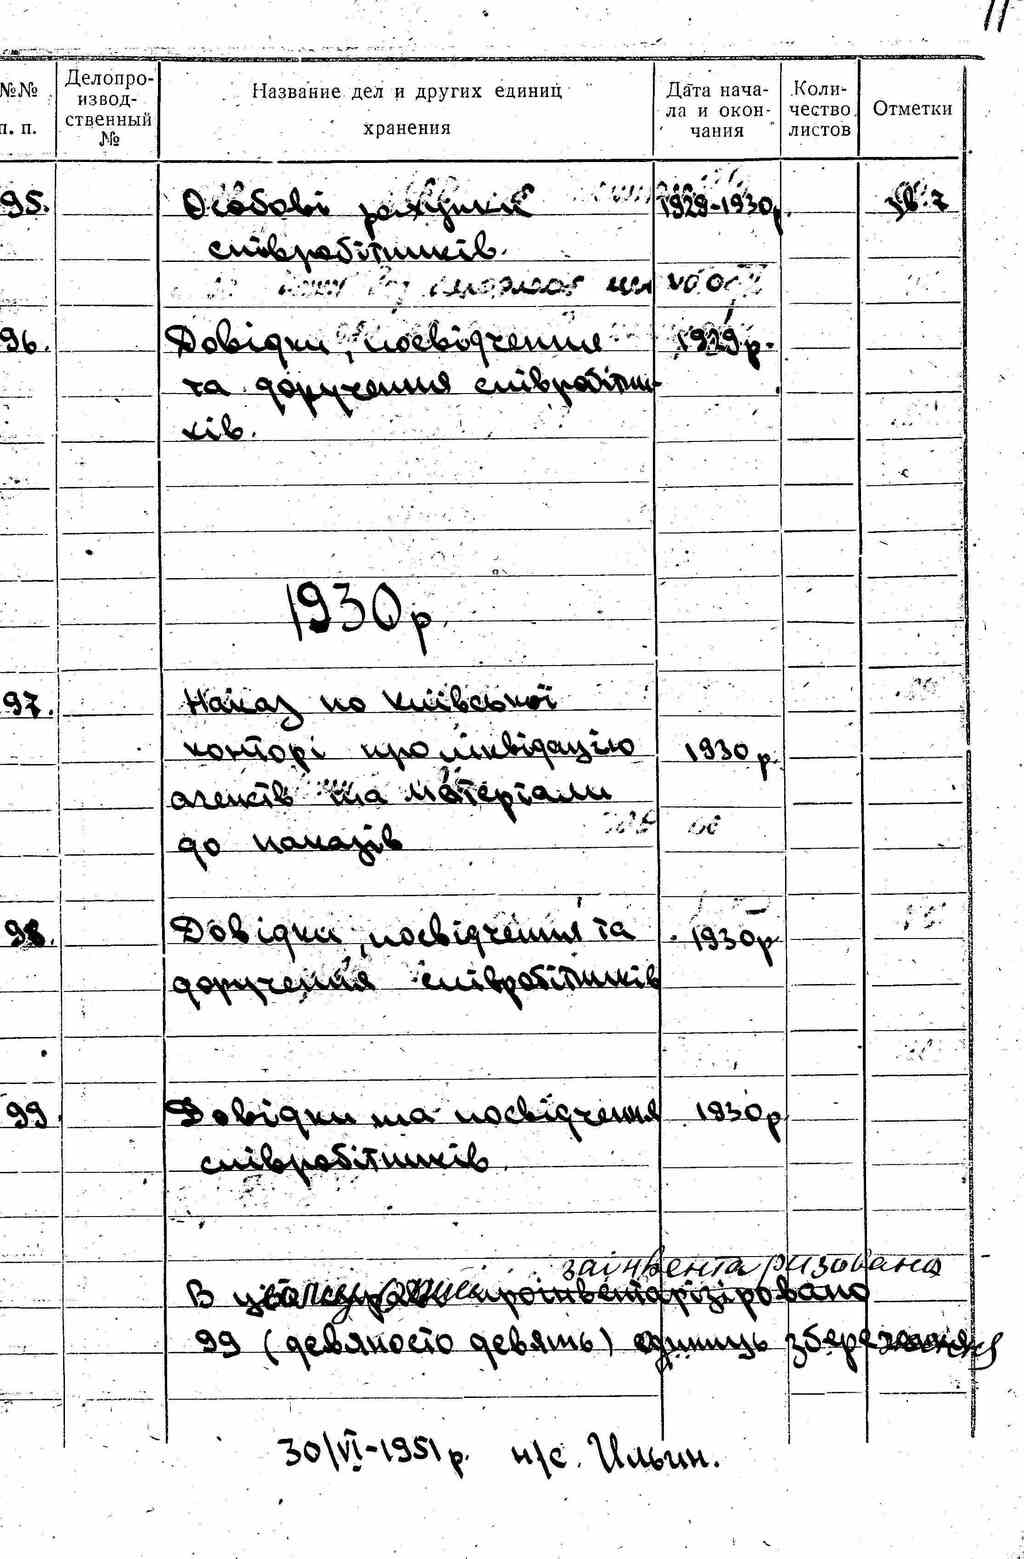 11
№№ п. п.
Делопроизвод-ственный №
Название дел и других единиц хранения
Дата нача-ла и окон-чания
Коли-чество листов
Отметки
95. Особові рахунки 1929-1930р.
співробітників.
96. Довідки, посвідчення 1929р.
та доручення співробітни-
ків.
1930р.
97. Наказ по Київської
конторі про ліквідацію 1930р.
агенств та матеріали
до наказів
98. Довідки, посвідчення та 1930р
доручення співробітників
99. Довідки та посвідчення 1930р
співробітників
заінвентаризовано
В проінвентарізіровано
99 (девяносто девять) единиць збереження
30/VI-1951р. н/с. Ильин.